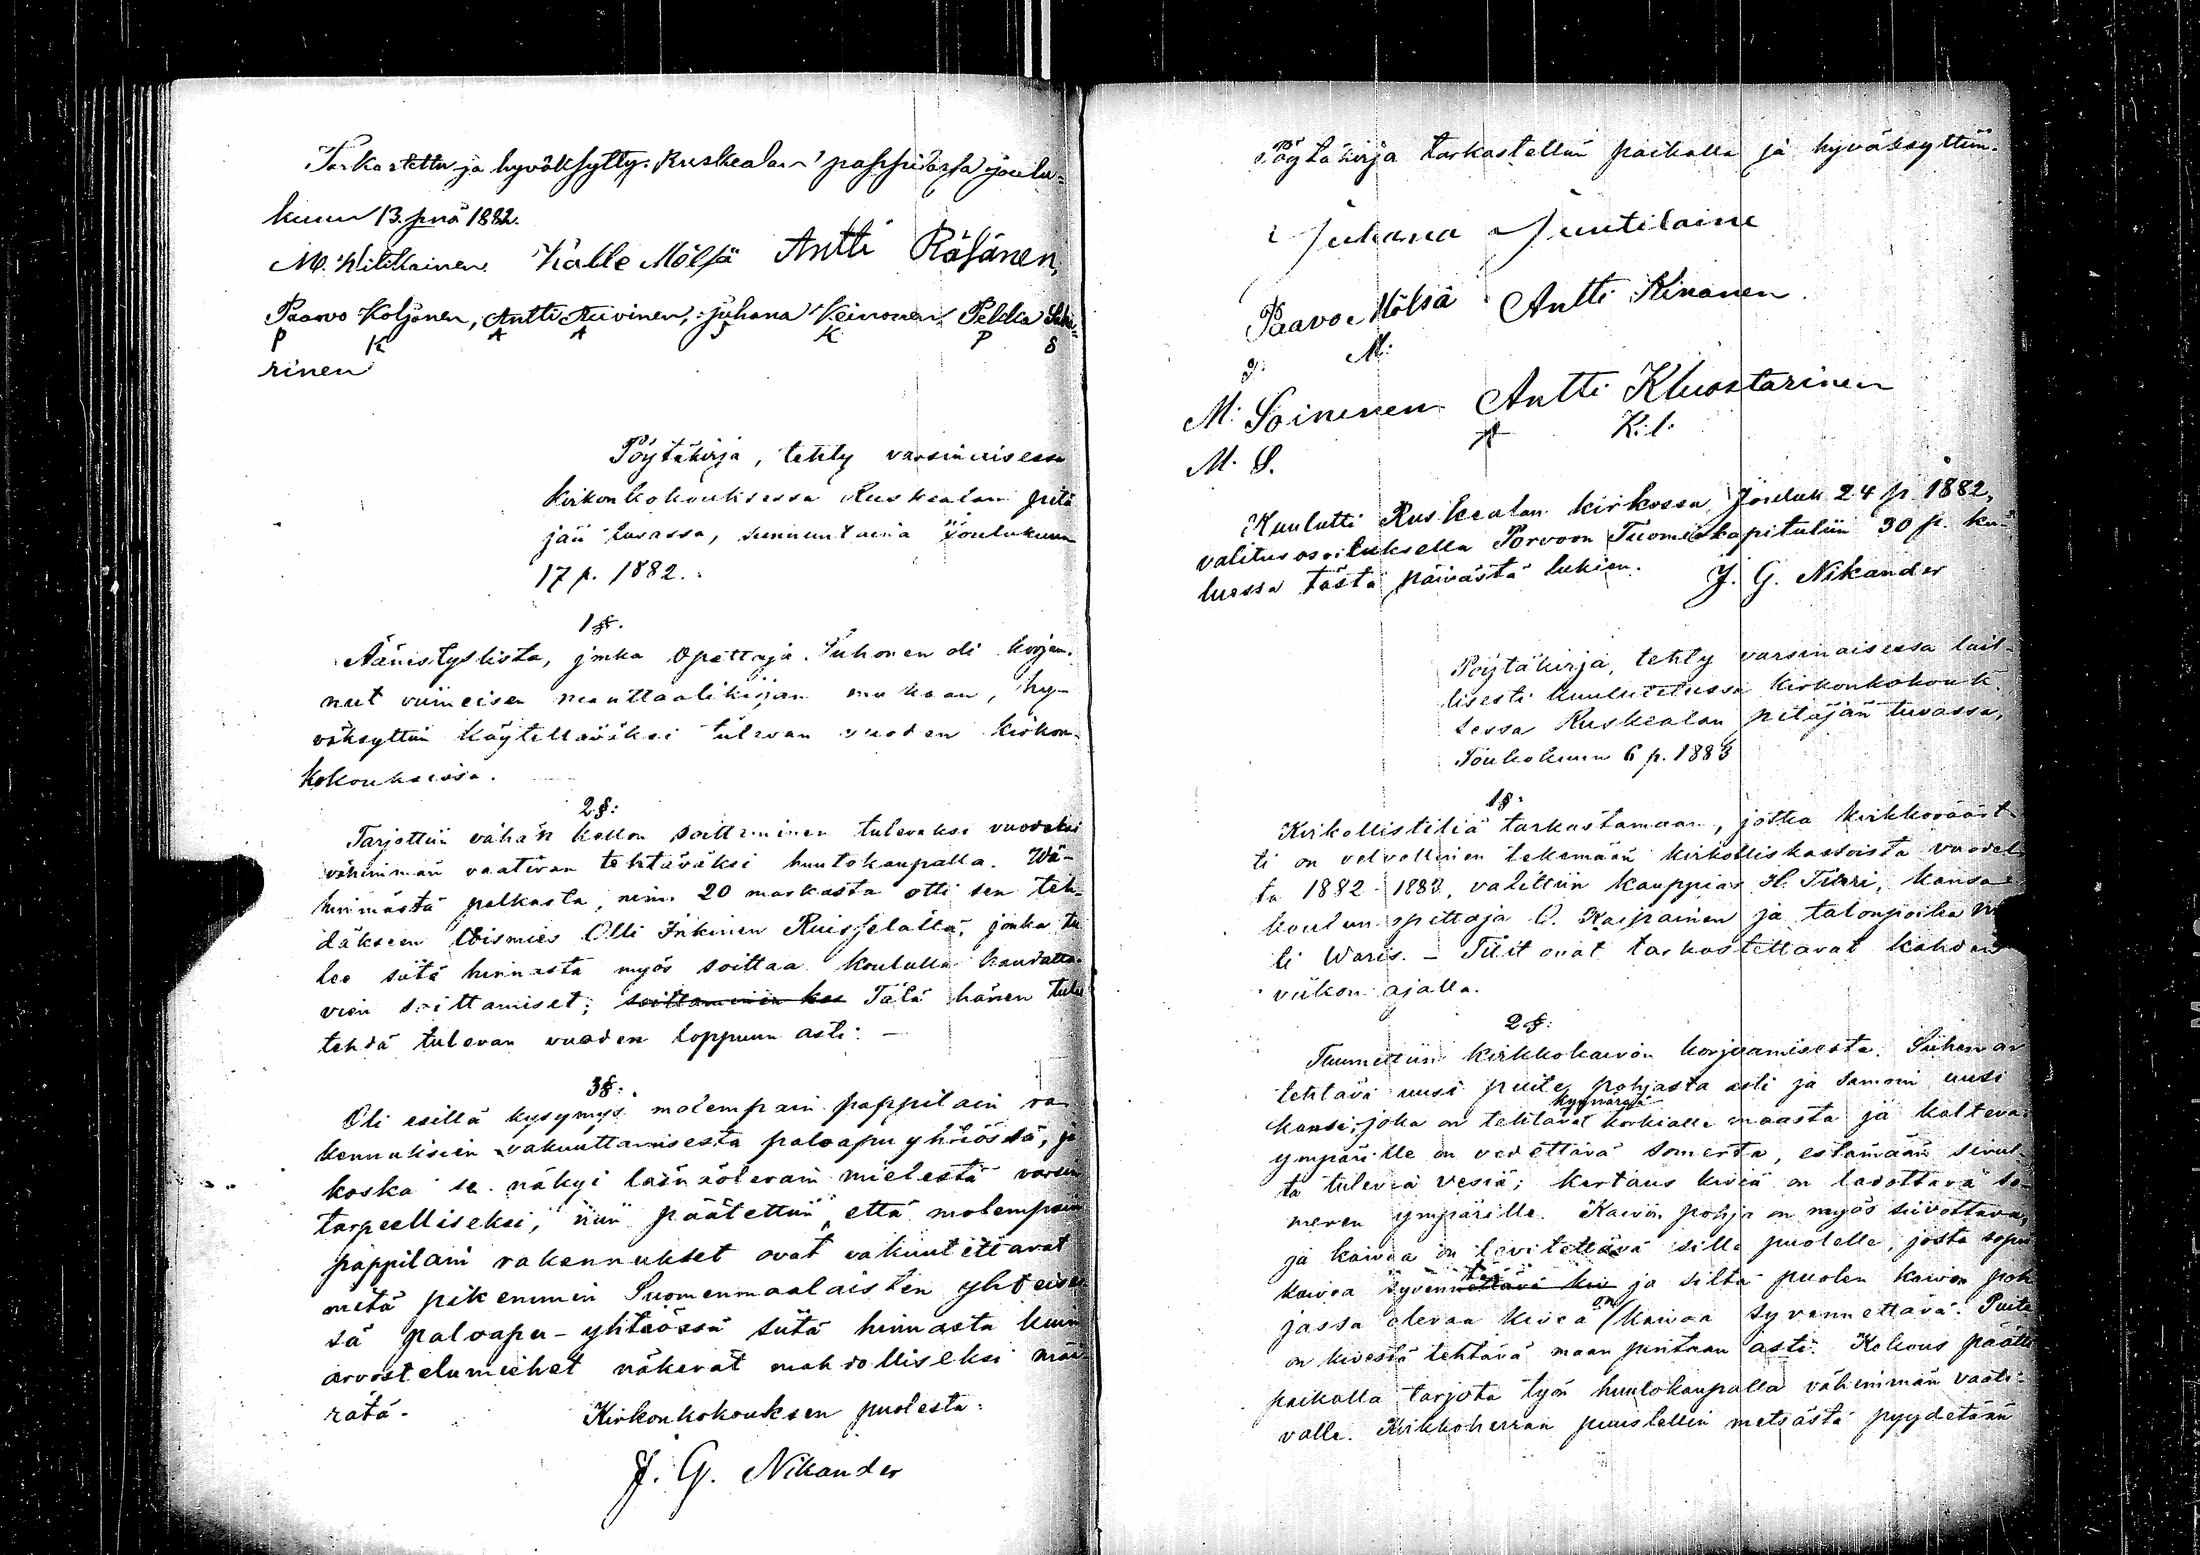 Tarkastettu ja hyväksytty Ruskealan pappilassa joulu=
kuun 13. pnä 1882.
M. Witikainen Kalle Mölsä Antti Räsänen,
Paavo Koljonen, Antti Auvinen, Juhana Keinonen Pekka
P K A A J K P S
rinen
Pöytäkirja, tehty varsinaisessa
kirkonkokouksessa Ruskealan pitä
jän tuvassa, sunnuntaina Joulukuun
17 p. 1882.
1 §.
Äänistyslista, jonka Opettaja Suhonen oli korjan-
nut viimeisen manttaalikirjan mukaan, hy-
väksyttiin käytettäväksi tulevan vuoden kirkon-
kokouksissa.
2 §:
Tarjottiin vähän kellon soittaminen tulevaksi vuodeksi
vähimmän vaativan tehtäväksi huutokaupalla. Wä-
himmästä palkasta, nim. 20 markasta otti sen teh-
däkseen loismies Olli Inkinen Ruisselältä, jonka tu
lee siitä hinnasta myös soittaa koululla haudatta-
vien soittamiset; soittaminen kos Tätä hänen tulee
tehdä tulevan vuoden loppuun asti: —
3 §:
Oli esillä kysymys molempain pappilain ra
kennuksien vakuuttamisesta paloapu yhtiössä, ja
koska se näkyi läsnäolevain mielestä varsin
tarpeelliseksi, niin päätettiin, että molempain
pappilain rakennukset ovat vakuutettavat
mitä pikemmin Suomenmaalaisten yhteises
sä paloapu-yhtiössä siitä hinnasta kuin
arvostelumiehet näkevät mahdolliseksi mää-
rätä. Kirkonkokouksen puolesta:
J. G. Nikander
Pöytäkirja tarkastettiin paikalla ja hyväksyttiin.
Juhana Juutilaine
Paavo Mölsä Antti Kinanen.
P. M.
M. Soininen Antti Kluostarinen
A K.l.
M. S.
Kuulutti Ruskealan kirkossa Jouluk 24 p 1882,
valitusosoituksella Porvoon Tuomiokapituliin 30 p. ku-
luessa tästä päivästä lukien. J. G. Nikander
Pöytäkirja, tehty varsinaisessa lail-
lisesti kuulutetussa kirkonkokouk-
sessa Ruskealan pitäjän tuvassa,
Toukokuun 6 p. 1883
1 §:
Kirkollistiliä tarkastamaan, jotka kirkkoväär­t-
ti on velvollinen tekemään kirkolliskassoista vuodel-
ta 1882-1883, valittiin kauppias H. Tikri, kansa-
koulun opettaja O. Kaipainen ja talonpoika
ti Waris. — Tilit ovat tarkastettavat kahden
viikon ajalla.
2 §:
Tuumittiin kirkkokaivon korjaamisesta. Siihen on
tehtävä uusi puite pohjasta asti ja samoin uusi
kyynärää
kansi, joka on tehtävä korkialle maasta ja kalteva
ympärille on vedettävä somerta, estämään sivul-
ta tulevia vesiä; kertaus kiviä on ladottava so-
meren ympärille. Kaivon pohja on myös siivottava,
ja kaivoa on levitettävä sille puolelle, josta sopii
kaivoa syvennettävä kiv ja siltä puolen kaivon poh
jassa olevaa kiveä on kaivoa syvennettävä. Puite
on kivestä tehtävä maan pintaan asti. Kokous päätti
paikalla tarjota työn huutokaupalla vähimmän vaati-
valle. Kirkkoherran puustellin metsästä pyydetään